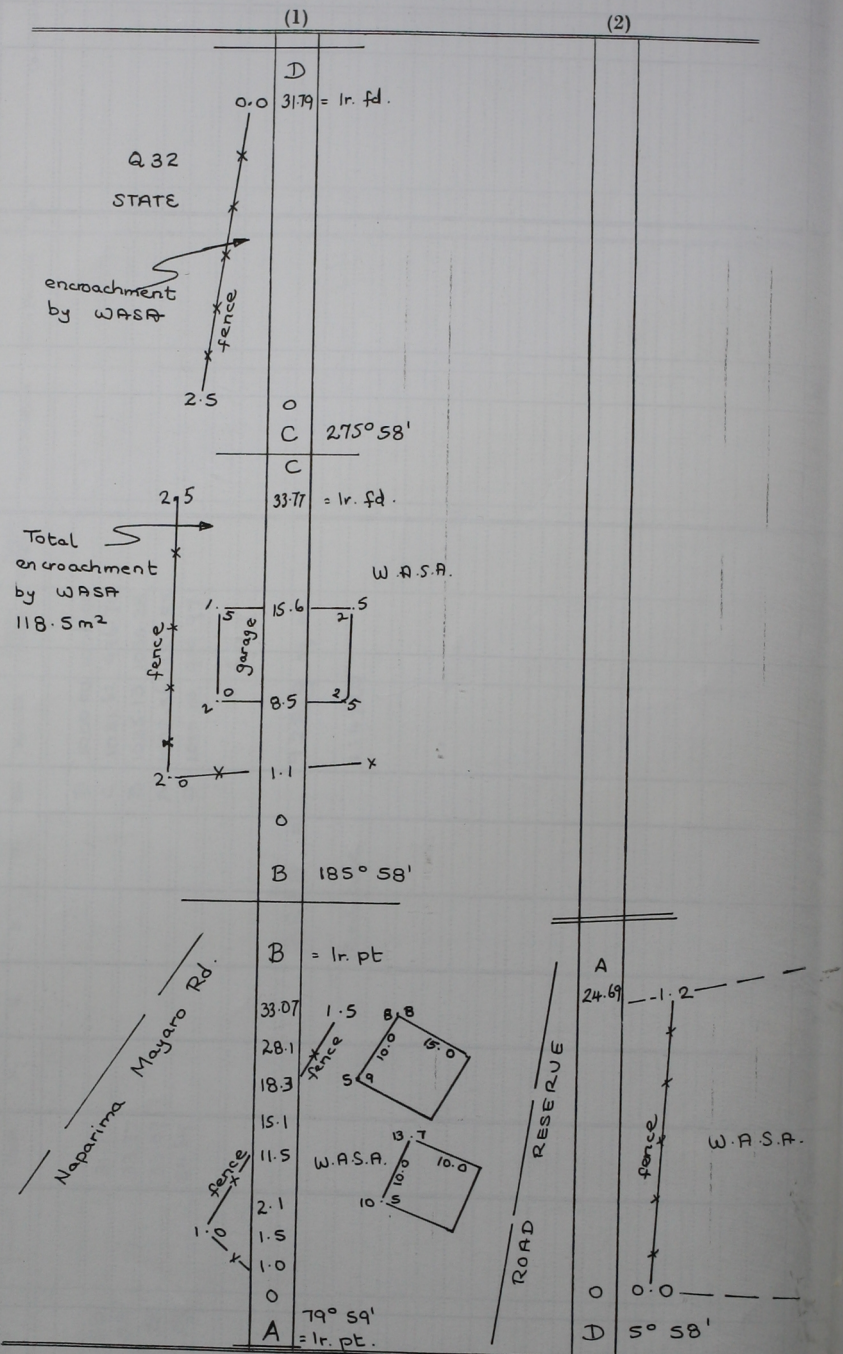 (1)
(2)
D
0.0 31.79 = Ir. fd.
Q32
STATE
encroachment
by WASA
fence
2.5
0
C 275° 58'
C
2.5 33.77 = Ir. fd.
Total
encroachment
by WASA
118.5 m²
W.A.S.A.
fence
1.5 15.6 2.5
garage
2.0 8.5 2.5
2.0 1.1
0
B 185° 58'
B = Ir. pt
Naparima Mayaro Rd.
33.07 1.5 8.8
28.1 fence 10.0 15.0
18.3 5.9
15.1 13.7
fence 11.5 W.A.S.A. 10.0 10.0
2.1 10.5
1.0 1.5
1.0
0
79° 59'
A = Ir. pt.
A
24.69 1.2
ROAD RESERVE
fence
W.A.S.A.
0 0.0
D 5° 58'